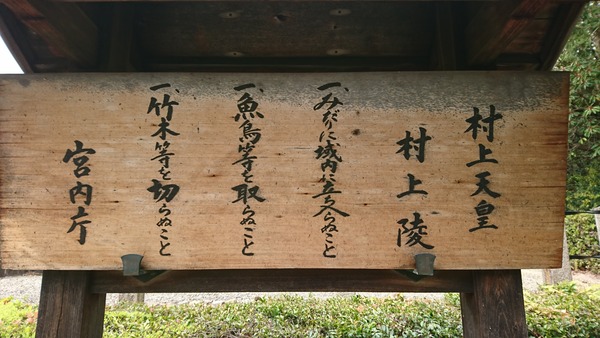 村上天皇
村上陵
一、みだりに域内に立ち入らぬこと
一、魚鳥等を取らぬこと
一、竹木等を切らぬこと
宮内庁